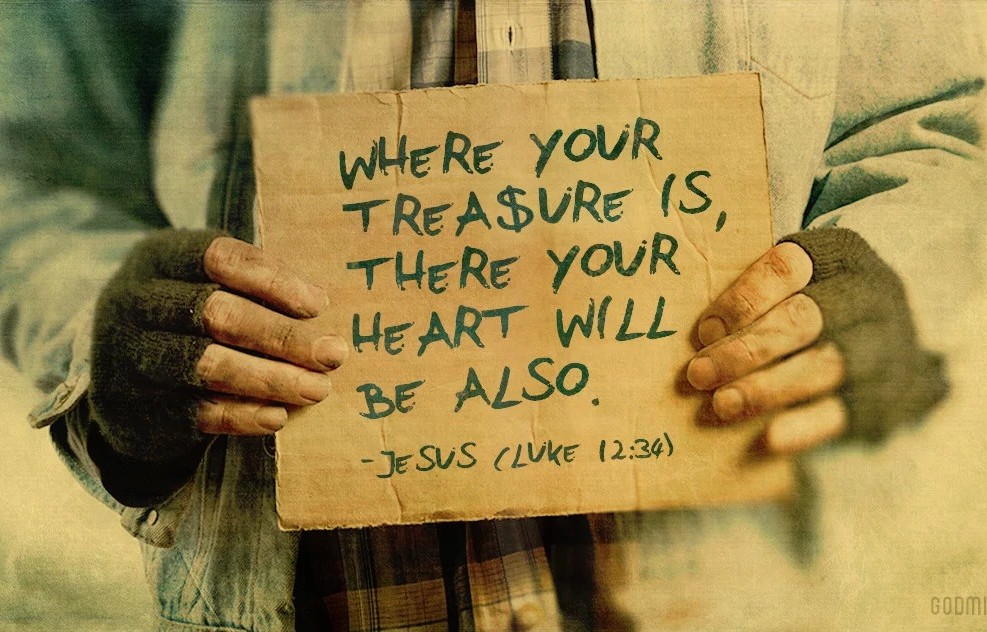 WHERE YOUR
TREA$URE IS,
THERE YOUR
HEART WILL
BE ALSO.
-JESUS (LUKE 12:34)
GODMI